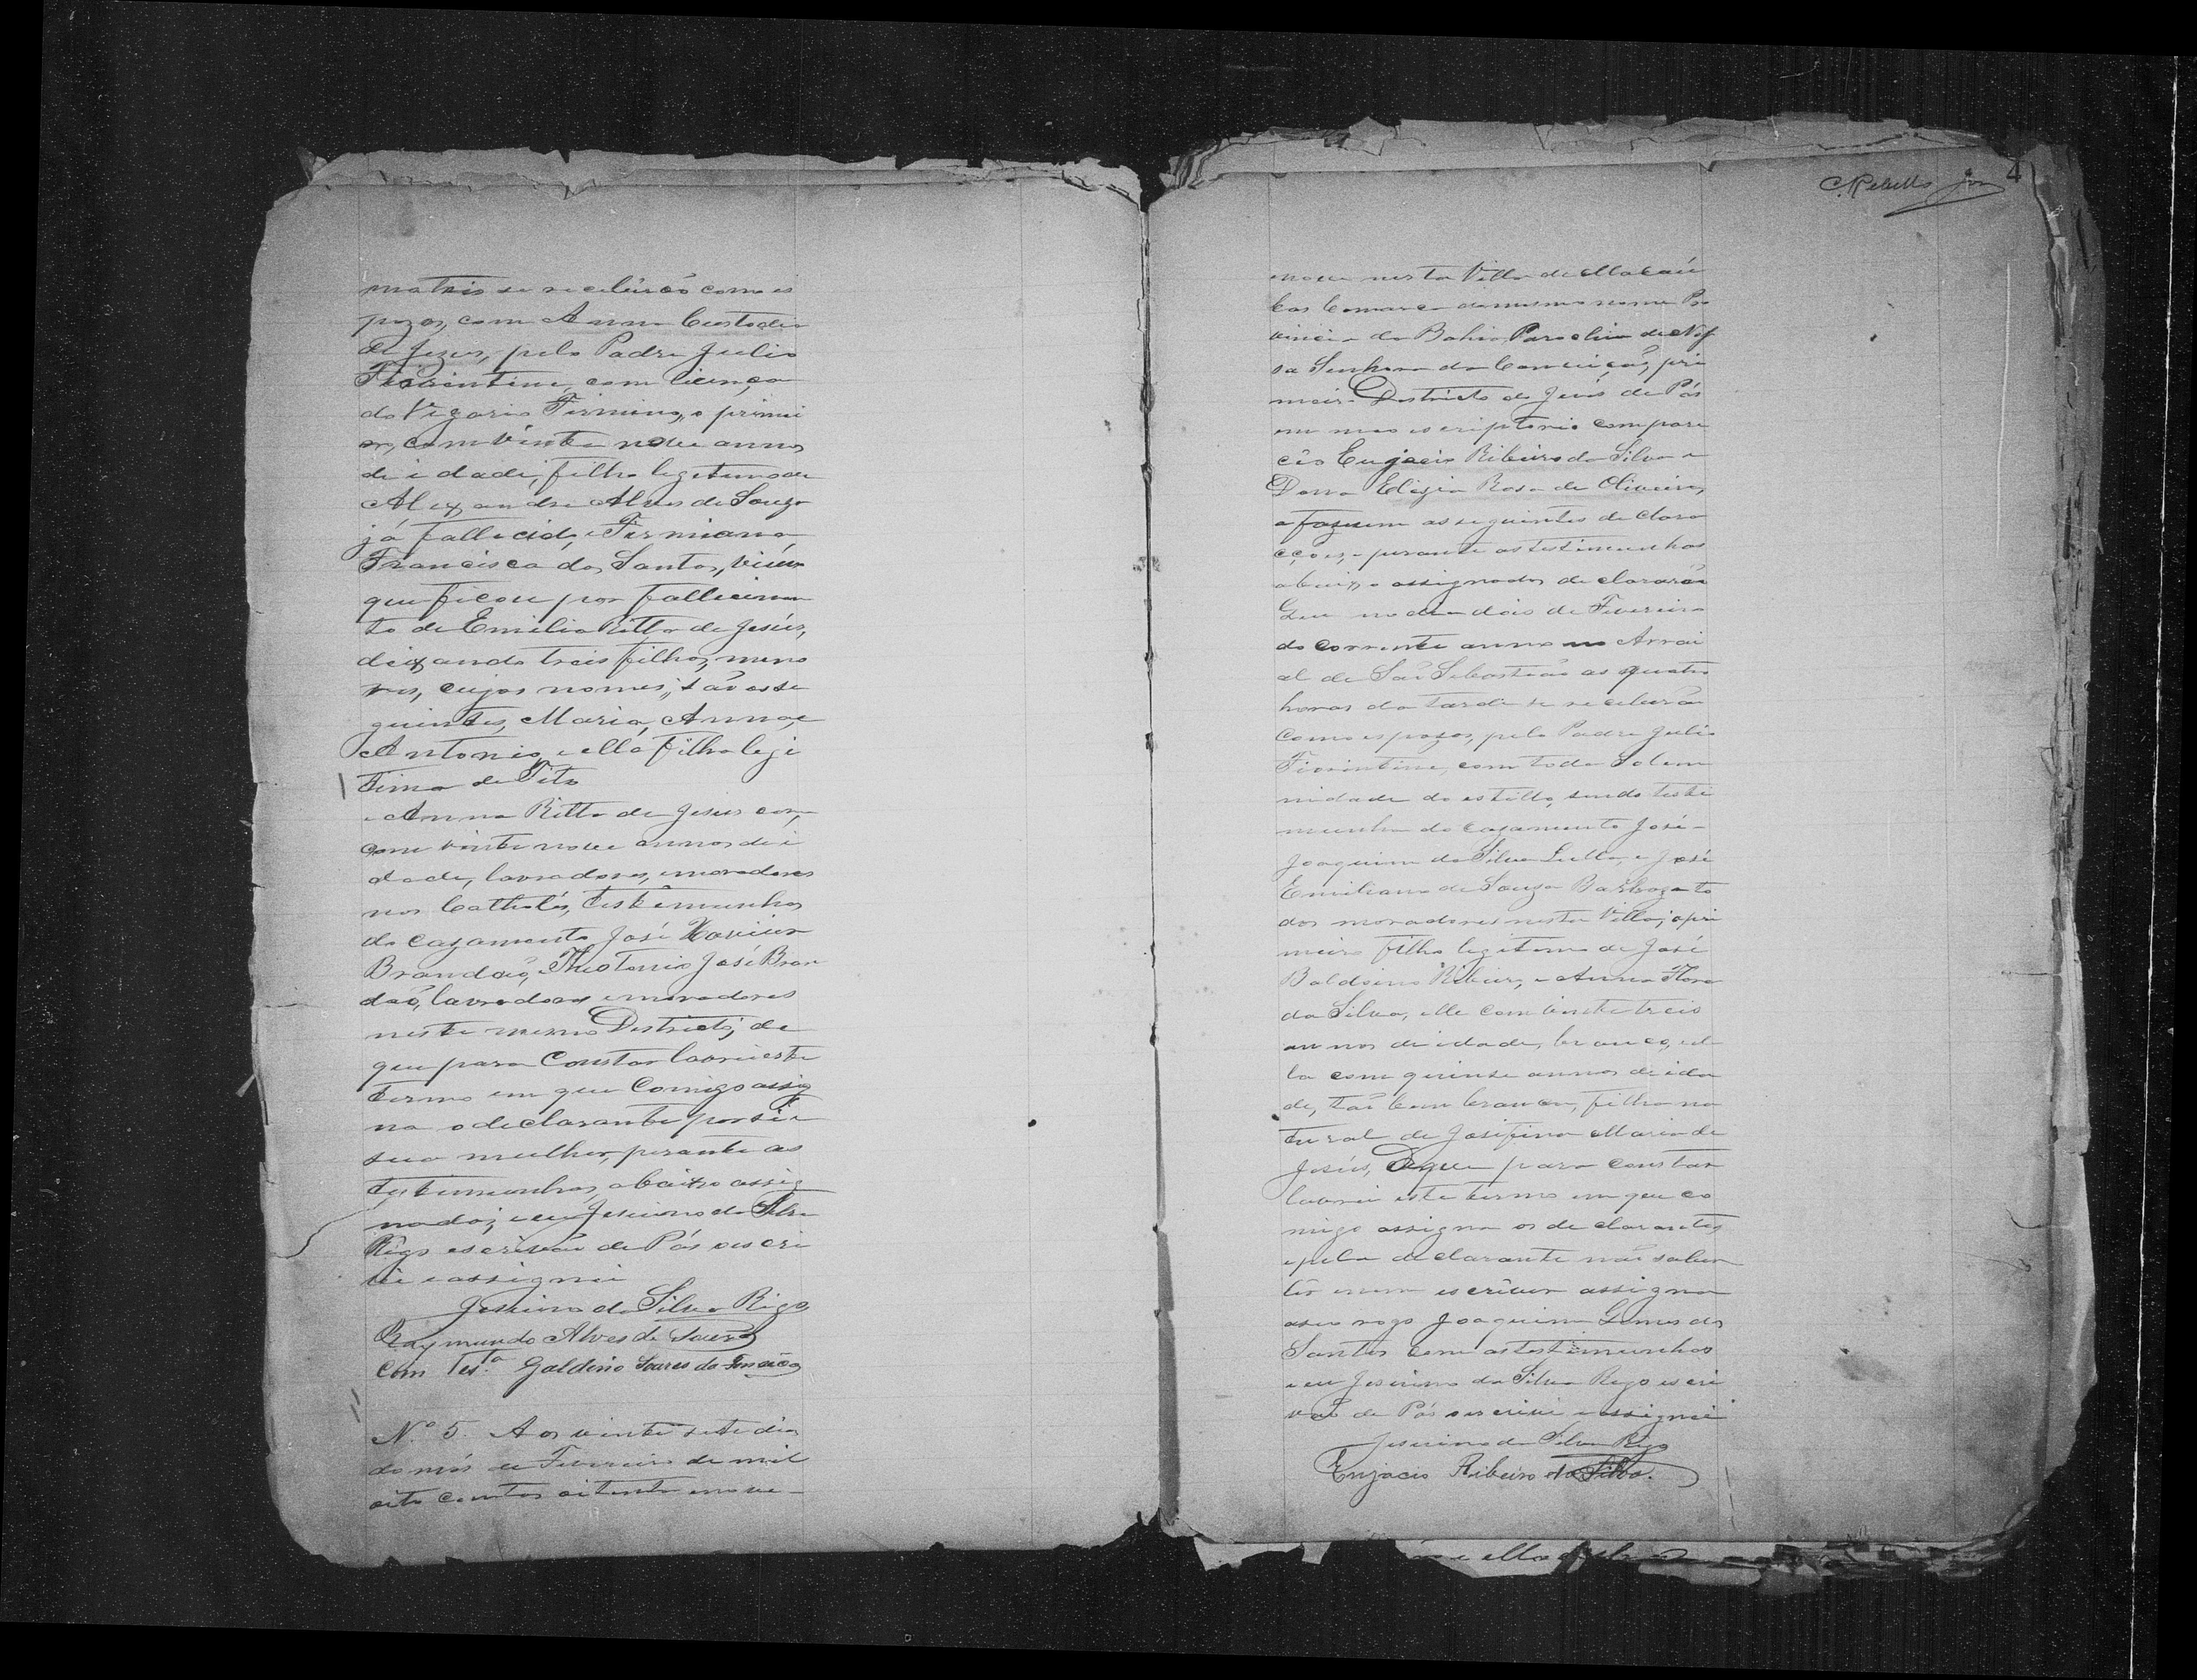 matris se receberão como es
pozos, com Anna Custodia
de Jezus, pelo Padre Julio
Fiorintine, com licença
do Vigario Firmino, o primei
ro, com vinte nove annos
de idade, filho legitimo de
Alexandre Alves de Souza
já fallecido, e Firmiana
Francisca dos Santos, viuvo
que ficou por fallecimen
to de Emilia Ritta de Jesús,
deixando treis filhos, meno
res, cujos nomes, são os se
guintes, Maria, Anna, e
Antonio, e ella filha legi
tima de Tito
e Anna Ritta de Jesus com,
com vinte nove annos de i
dade, lavradores, e moradores
nos Cathulés, testemunhas
do cazamento José Xavier
Brandão, e Theotonio José Bran
dão, lavradores e moradores
neste mesmo Destricto, de
que para Constar lavrei este
termo em que Comigo assig
na o declarante por si e
sua mulher, perante as
testemunhas, abaixo assig
nados, e eu Jesuino da Silva
Rigo escrivão de Pás o escri
vi e assignei
Jesuino da Silva Rigo
Raymundo Alves de Souza
Com Tes.ª Galdino Soares da
Nº 5. Aos vinte sete dias
do mês de Fevereiro de mil
oito centos oitenta e nove
4
nove nesta Villa de Macaú
bas Comarca do mesmo nome Pro
vincia da Bahia, Parochia de Nos
sa Senhora da Conceição, pri
meiro Destricto de Juis de Pás
em meo escriptorio compare
cêo Eujacio Ribeiro da Silva e
Dona Eligia Rosa de Oliveira,
a fazerem as seguintes declara
ções, e perante as testimunhas
abaixo assignados declararão
Que no dia dois de Fevereiro
do corrente anno no Arrai
al de São Sebastião as quatro
horas da tarde se receberão
Como espozos, pelo Padre Julio
Fiorintine, com toda Solem
nidade do estillo, sendo teste
munha do cazamento José
Joaquim da Silva e José
Emiliano de Souza Barboza to
dos moradores nesta Villa; o pri
meiro filho legitimo de José
Baldoino Ribeiro, e Anna Flora
da Silva, elle com vinte treis
annos de idade, branco, el
la com quinse annos de ida
de, tão bem branca, filha na
tural de Josifina Maria de
Jesús, De que para constar
lavrei este termo em que co
migo assigna os declarantes,
e pela declarante não saber
lêr nem escrever assigna
a seu rogo Joaquim Gomes dos
Santos com as testimunhas
e eu Jesuino da Silva Rigo escri
vão de Pás o escrivi e assignei
Jesuino da Silva Rigo
Eujacio Ribeiro da Silva.
e ella